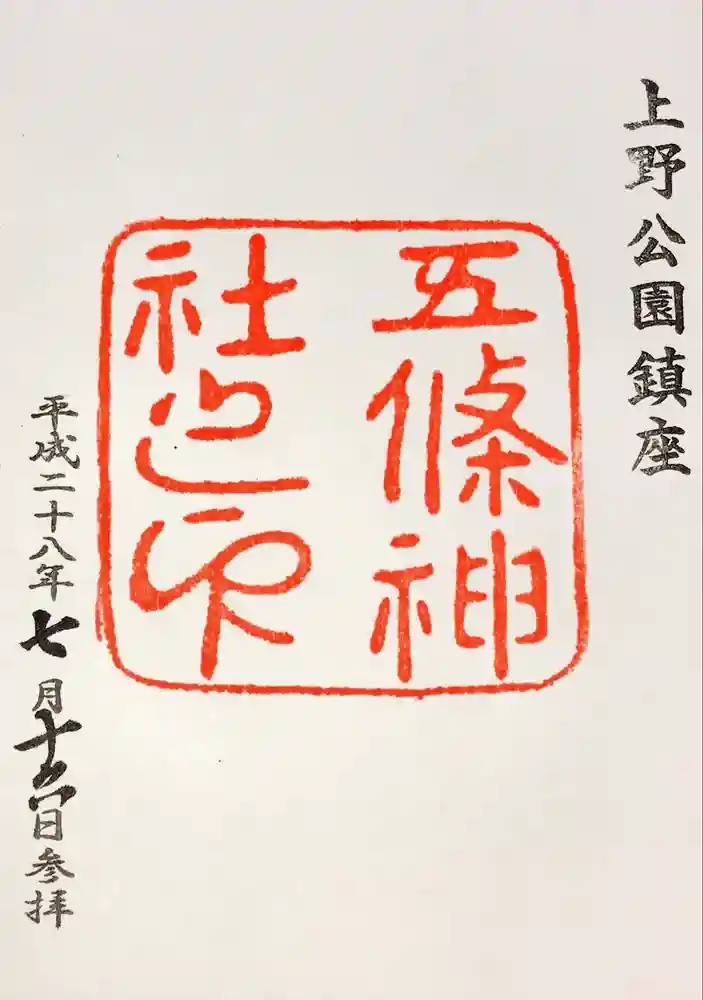 上野公園鎮座
五條神
社之印
平成二十八年七月十六日参拝